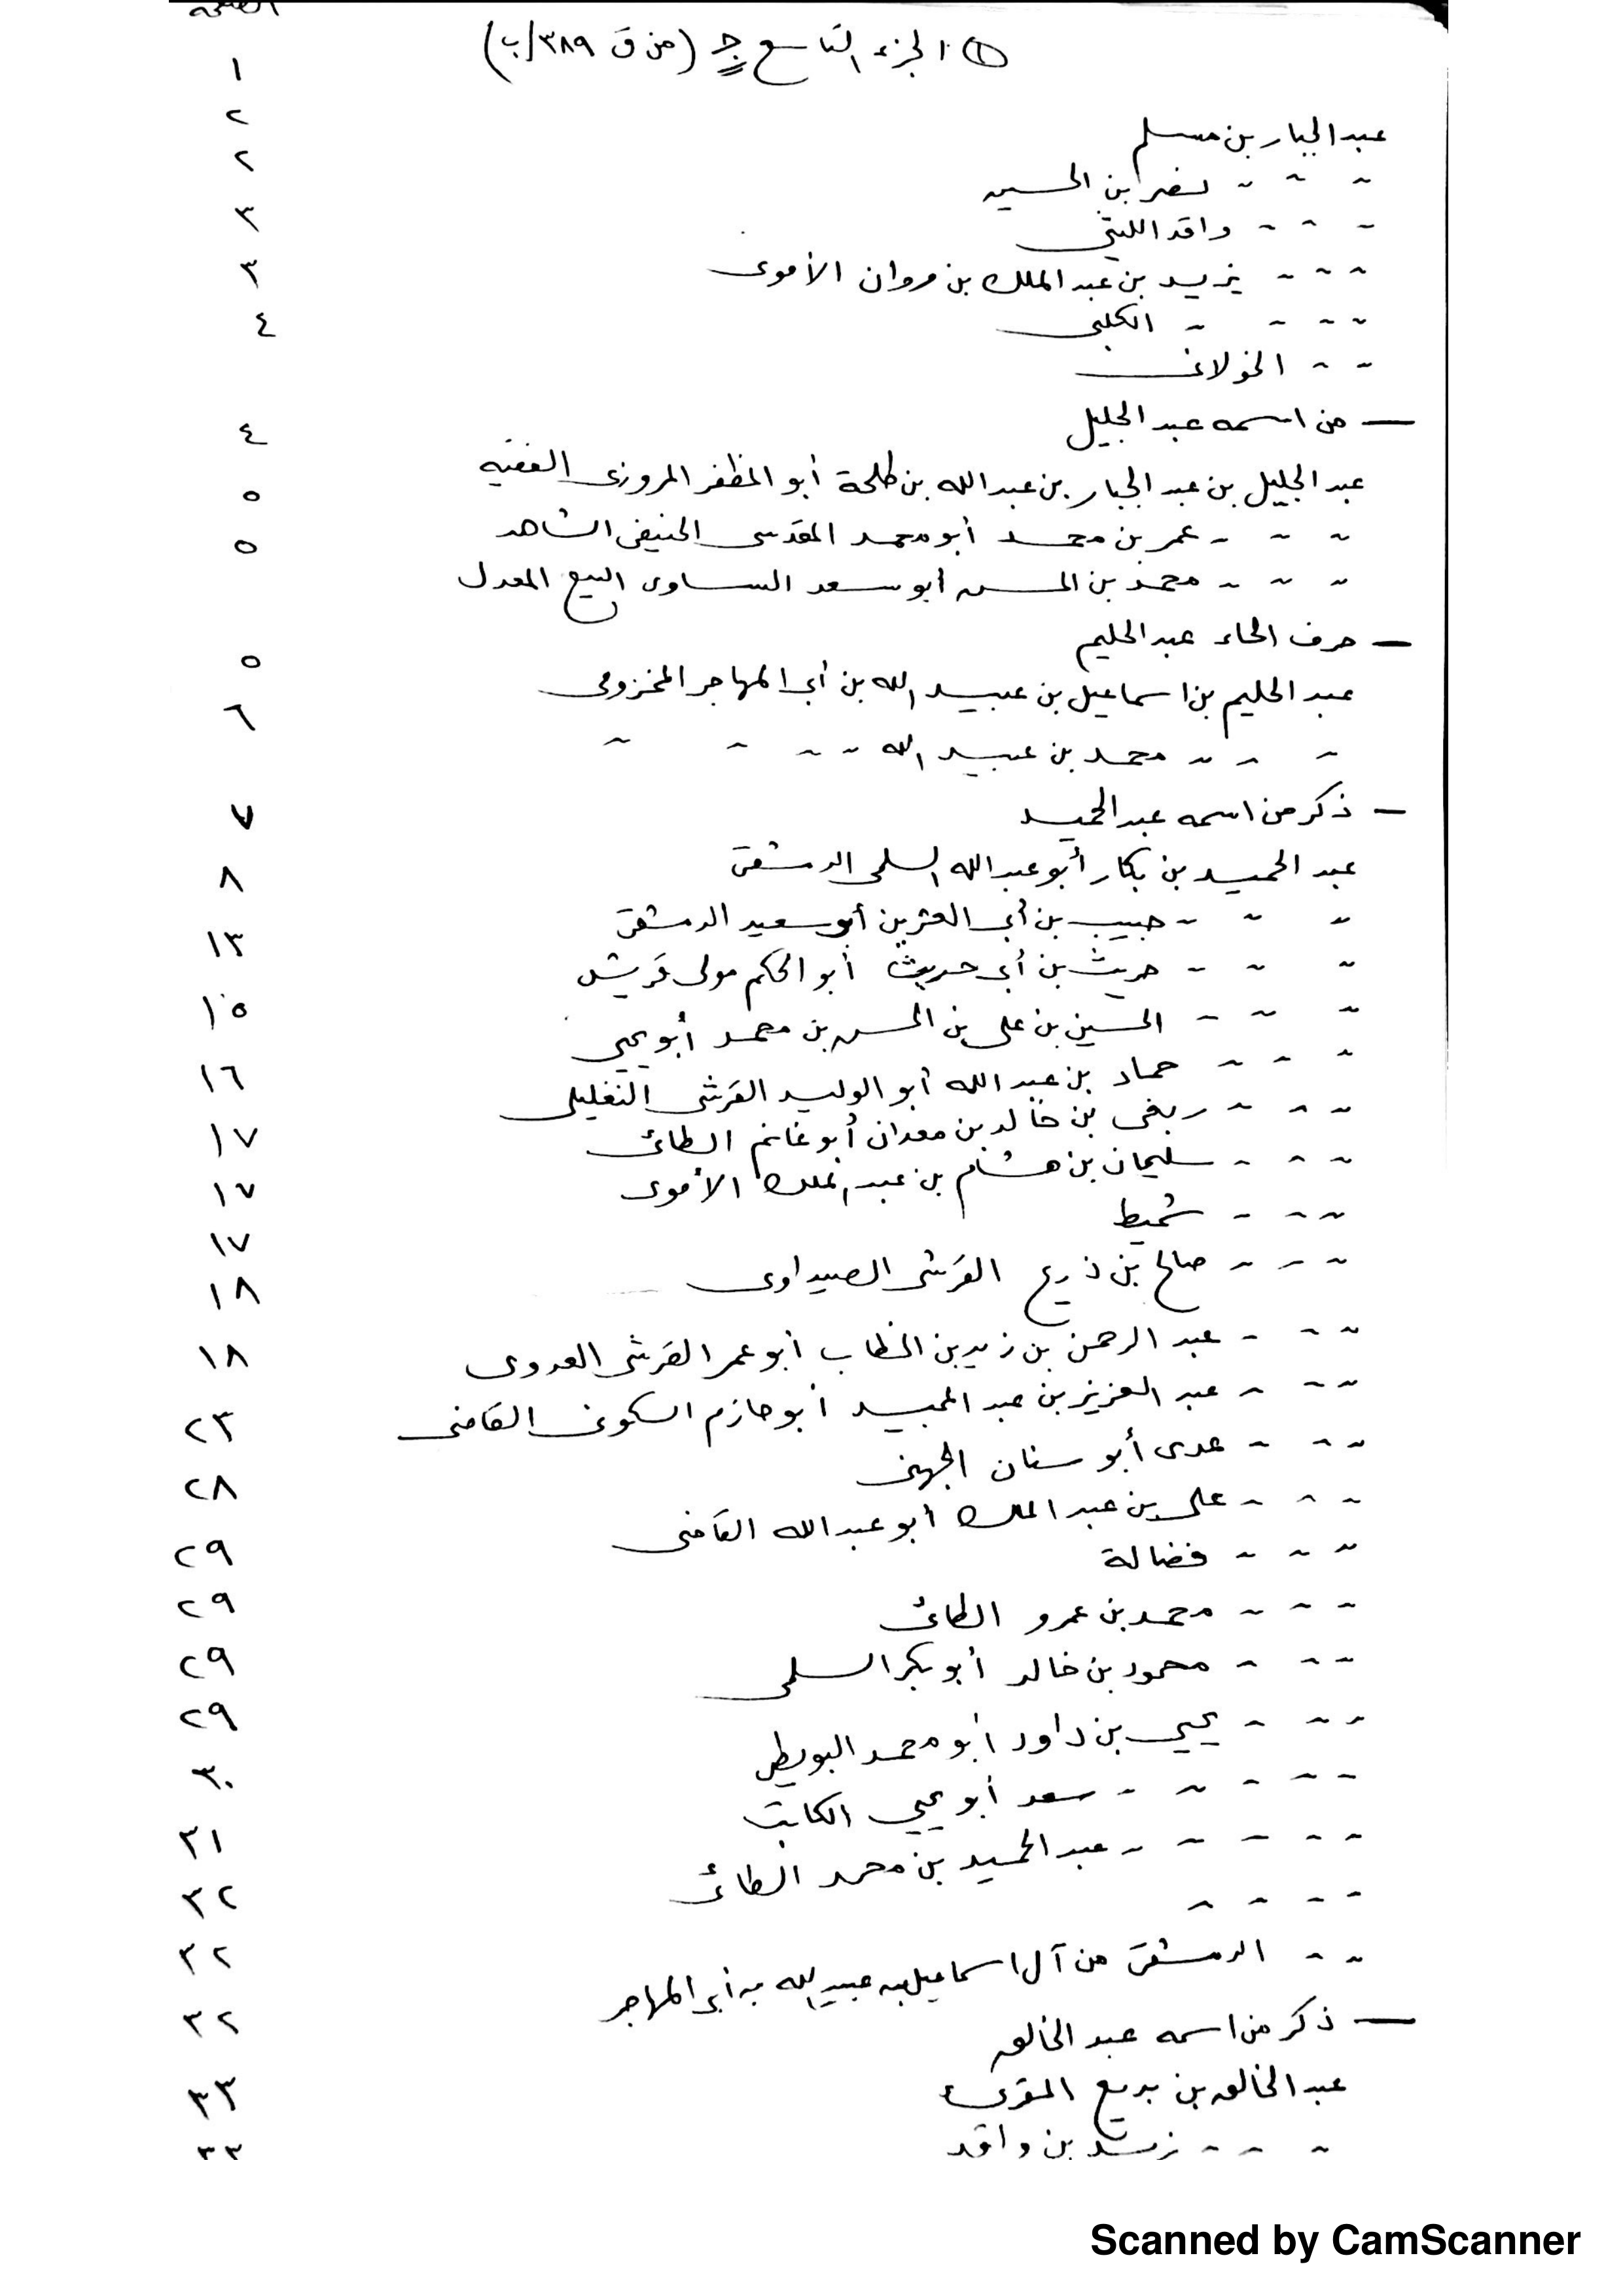 الصفحة
① الجزء التاسع ج (من ق ٣٨٩/ب)
١
عبد الجبار بن مسلم ٢
~ ~ ~ نصر ابن الحسين ٢
~ ~ ~ واقد الليثي ٣
~ ~ ~ يزيد بن عبد الملك بن مروان الأموى ٣
~ ~ ~ ~ الكلبى ٤
~ ~ الخولانى
— من اسمه عبد الجليل
عبد الجليل بن عبد الجبار بن عبد الله بن طلحة أبو المظفر المروزى الفقيه ٤
~ ~ ~ عمر بن محمد أبو محمد المقدسى الحنيفى الشاهد ٥
~ ~ ~ محمد بن الحسن أبو سعد الساوى البيع المعدل ٥
— حرف الحاء عبد الحليم
عبد الحليم بن اسماعيل بن عبيد الله بن أبي المهاجر المخزومى ٥
~ ~ ~ محمد بن عبيد الله ~ ~ ~ ~ ٦
— ذكر من اسمه عبد الحميد
عبد الحميد بن بكار أبو عبد الله السلمى الدمشقى ٧
~ ~ ~ حبيب بن أبي العشرين أبو سعيد الدمشقى ٨
~ ~ ~ حريث بن أبى حريث أبو الحكم مولى قريش ١٣
~ ~ ~ الحسين بن على بن الحسن بن محمد أبو يحيي ١٥
~ ~ ~ حماد بن عبد الله أبو الوليد القرشى ١٦
~ ~ ~ ربعى بن خالد بن معدان أبو غانم الطائى ١٧
~ ~ ~ سليمان بن هشام بن عبد الملك الأموى ١٧
~ ~ ~ شميط ١٧
~ ~ ~ صالح بن ذريع القرشى الصيداوى ١٨
~ ~ ~ عبد الرحمن بن زيد بن الخطاب أبو عمر القرشى العدوى ١٨
~ ~ ~ عبد العزيز بن عبد الحميد أبو حازم السكونى القاضى ٢٣
~ ~ ~ عدى أبو سنان الجهنى ٢٨
~ ~ ~ على بن عبد الملك أبو عبد الله القاضى ٢٩
~ ~ ~ فضالة ٢٩
~ ~ ~ محمد بن عمرو الطائى ٢٩
~ ~ ~ محمود بن خالد أبو بكر السلمى ٢٩
~ ~ ~ يحيي بن داود أبو محمد البويطى ٣٠
~ ~ ~ ~ ~ سعد أبو يحيي الكاتب ٣١
~ ~ ~ ~ ~ عبد الحميد بن محمد الطائى ٣٢
~ ~ ~ ~ ٣٢
~ ~ الدمشقى من آل اسماعيل بن عبيد الله بن أبى المهاجر ٣٢
— ذكر من اسمه عبد الخالق
عبد الخالق بن بديع المقرىء ٣٣
~ ~ ~ زيد بن واقد ٣٣
Scanned by CamScanner